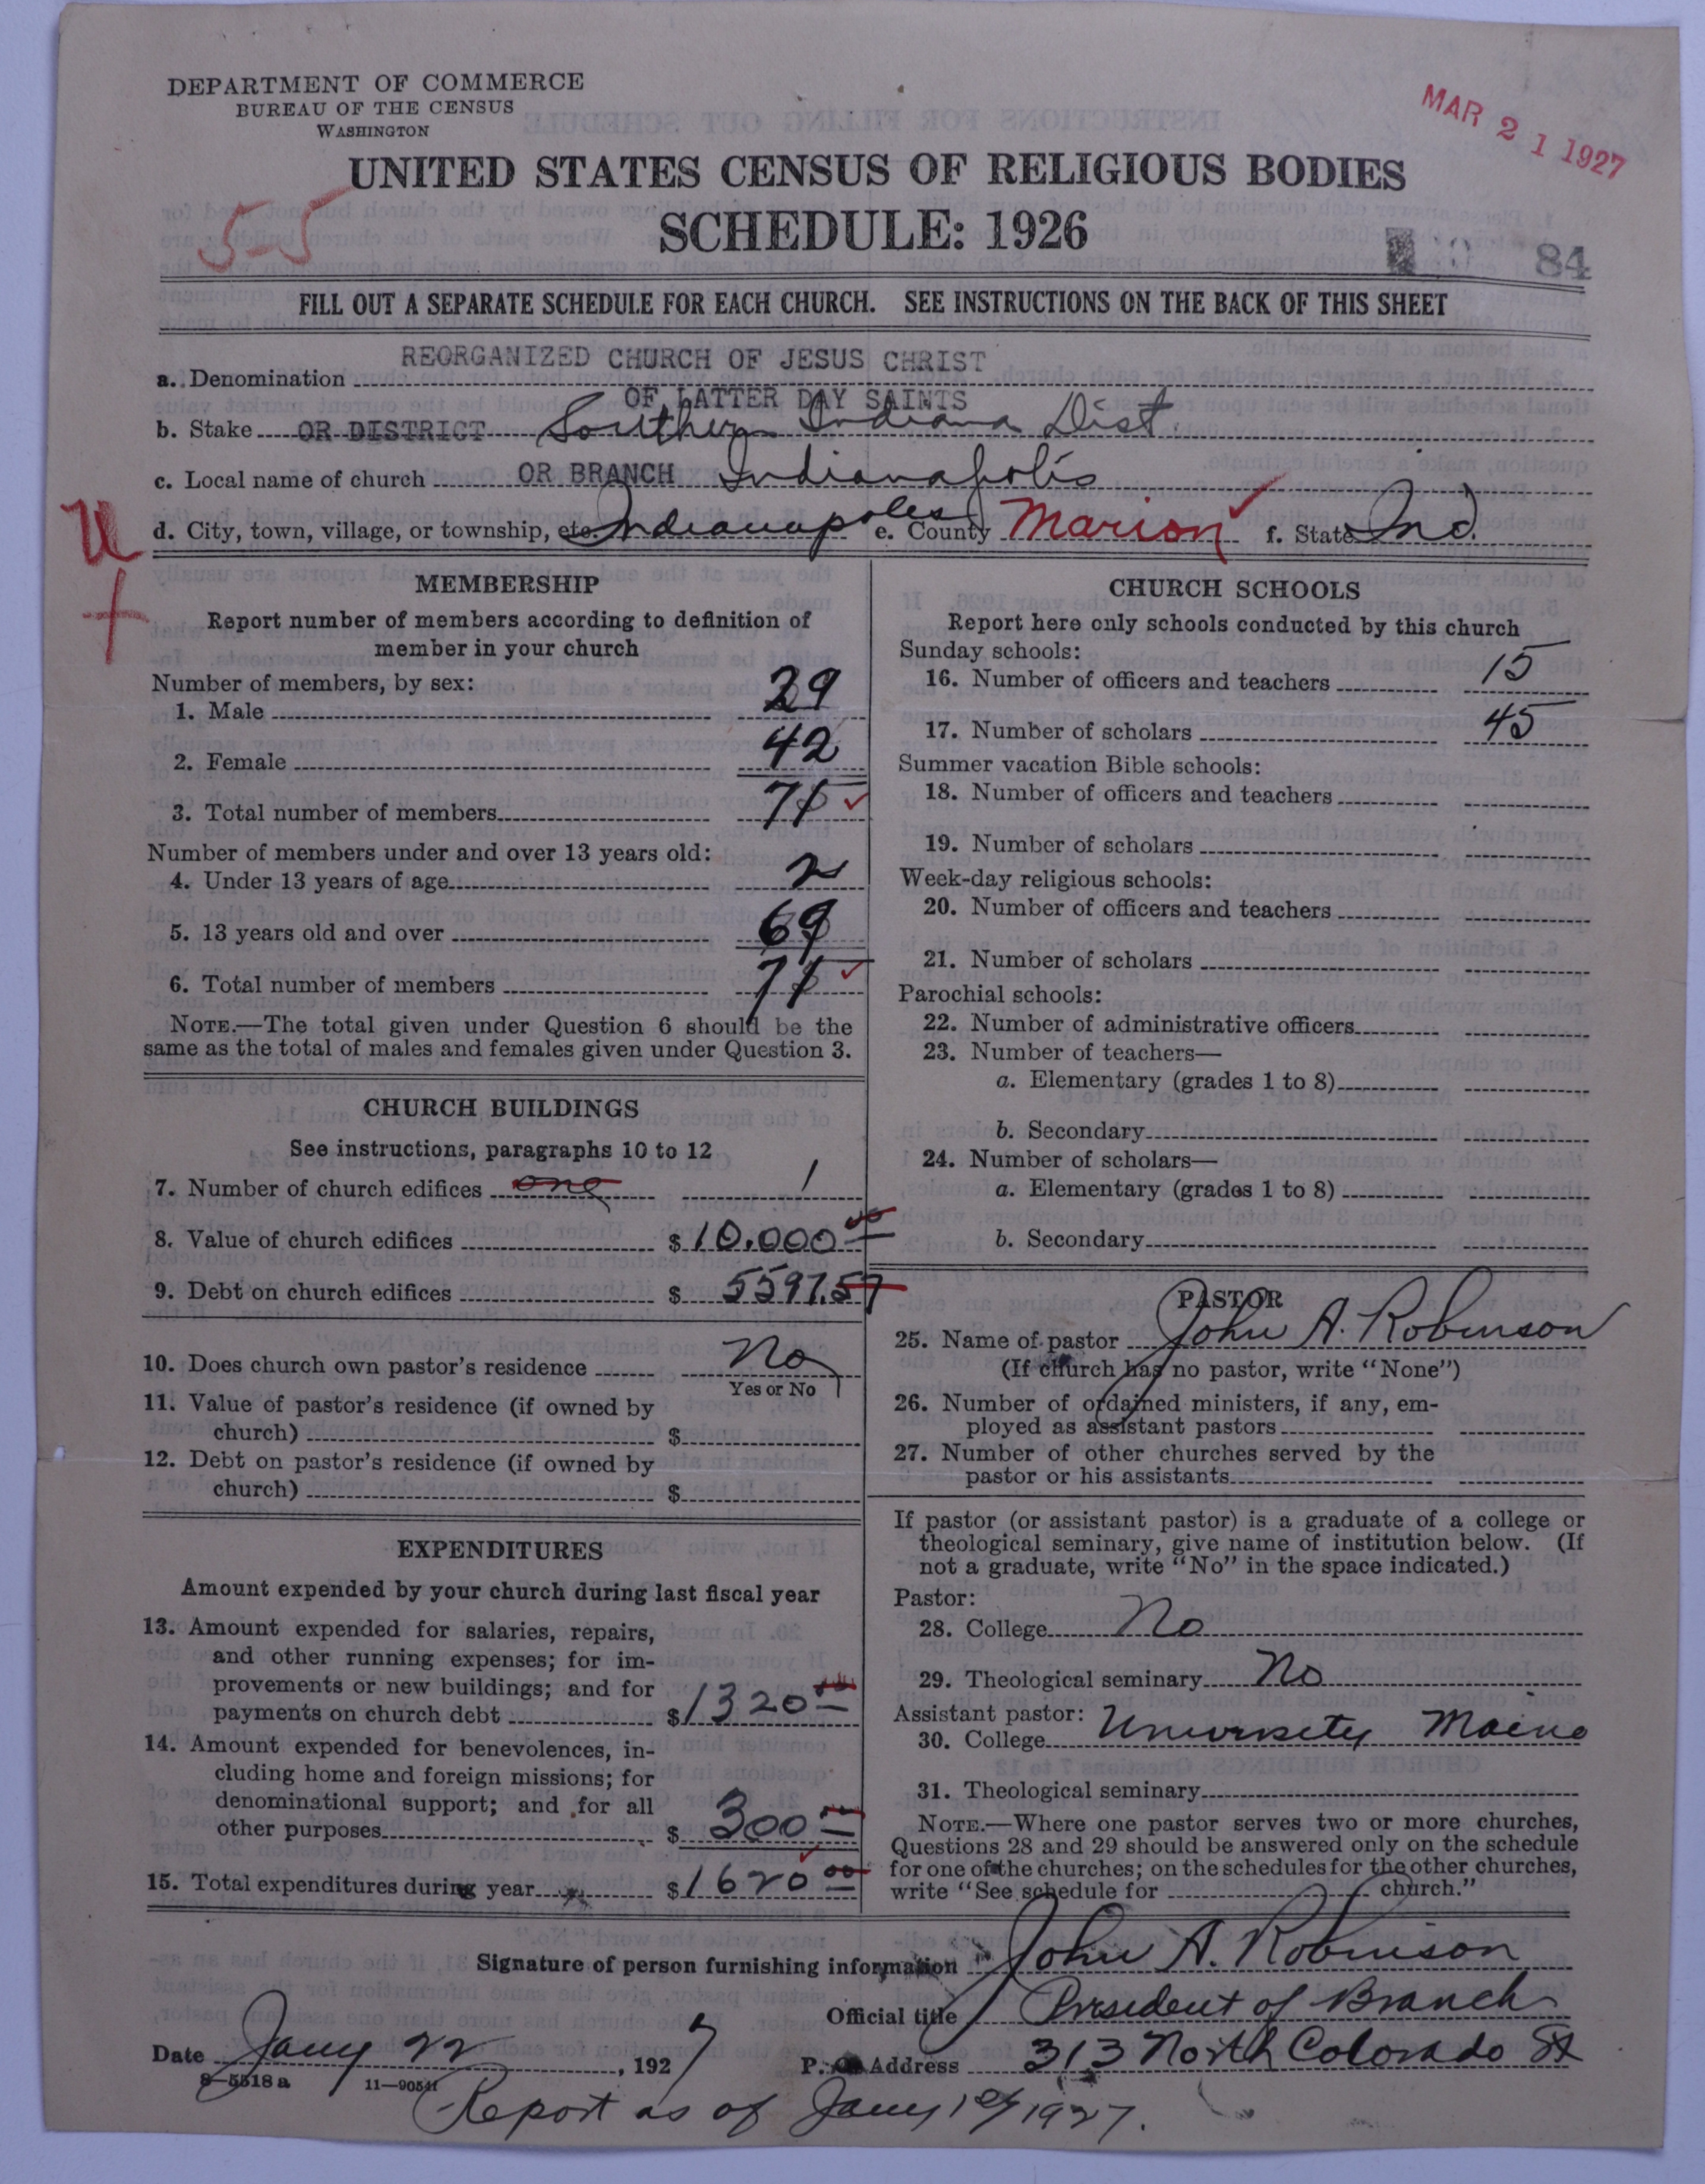 DEPARTMENT OF COMMERCE
BUREAU OF THE CENSUS
WASHINGTON
MAR 21 1927
UNITED STATES CENSUS OF RELIGIOUS BODIES
SCHEDULE: 1926
55
84
FILL OUT A SEPARATE SCHEDULE FOR EACH CHURCH. SEE INSTRUCTIONS ON THE BACK OF THIS SHEET
REORGANIZED CHURCH OF JESUS CHRIST
a. Denomination
OF LATTER DAY SAINTS
b. Stake OR DISTRICT Southern Indiana Dist.
c. Local name of church OR BRANCH Indianapolis
d. City, town, village, or township, etc. Indianapoles e. County Marion f. State Ind.
MEMBERSHIP
Report number of members according to definition of
member in your church
Number of members, by sex:
1. Male 29
2. Female 42
3. Total number of members 71
Number of members under and over 13 years old:
4. Under 13 years of age 2
5. 13 years old and over 69
6. Total number of members 71
NOTE.—The total given under Question 6 should be the
same as the total of males and females given under Question 3.
CHURCH BUILDINGS
See instructions, paragraphs 10 to 12
7. Number of church edifices one 1
8. Value of church edifices $ 10.000 00
9. Debt on church edifices $ 5597.57
10. Does church own pastor's residence No
Yes or No
11. Value of pastor's residence (if owned by
church) $
12. Debt on pastor's residence (if owned by
church) $
EXPENDITURES
Amount expended by your church during last fiscal year
13. Amount expended for salaries, repairs,
and other running expenses; for im-
provements or new buildings; and for
payments on church debt $ 1320 00
14. Amount expended for benevolences, in-
cluding home and foreign missions; for
denominational support; and for all
other purposes $ 300
15. Total expenditures during year $ 1620 00
CHURCH SCHOOLS
Report here only schools conducted by this church
Sunday schools:
16. Number of officers and teachers 15
17. Number of scholars 45
Summer vacation Bible schools:
18. Number of officers and teachers
19. Number of scholars
Week-day religious schools:
20. Number of officers and teachers
21. Number of scholars
Parochial schools:
22. Number of administrative officers
23. Number of teachers—
a. Elementary (grades 1 to 8)
b. Secondary
24. Number of scholars—
a. Elementary (grades 1 to 8)
b. Secondary
PASTOR
25. Name of pastor John A. Robinson
(If church has no pastor, write "None")
26. Number of ordained ministers, if any, em-
ployed as assistant pastors
27. Number of other churches served by the
pastor or his assistants
If pastor (or assistant pastor) is a graduate of a college or
theological seminary, give name of institution below. (If
not a graduate, write "No" in the space indicated.)
Pastor:
28. College No
29. Theological seminary No
Assistant pastor:
30. College University Maine
31. Theological seminary
NOTE.—Where one pastor serves two or more churches,
Questions 28 and 29 should be answered only on the schedule
for one of the churches; on the schedules for the other churches,
write "See schedule for church."
Signature of person furnishing information John A. Robinson
Official title President of Branch
Date Jany 22, 1927 P. O. Address 313 North Colorado St
8-5518 a 11—90541
Report as of Jany 1st 1927.